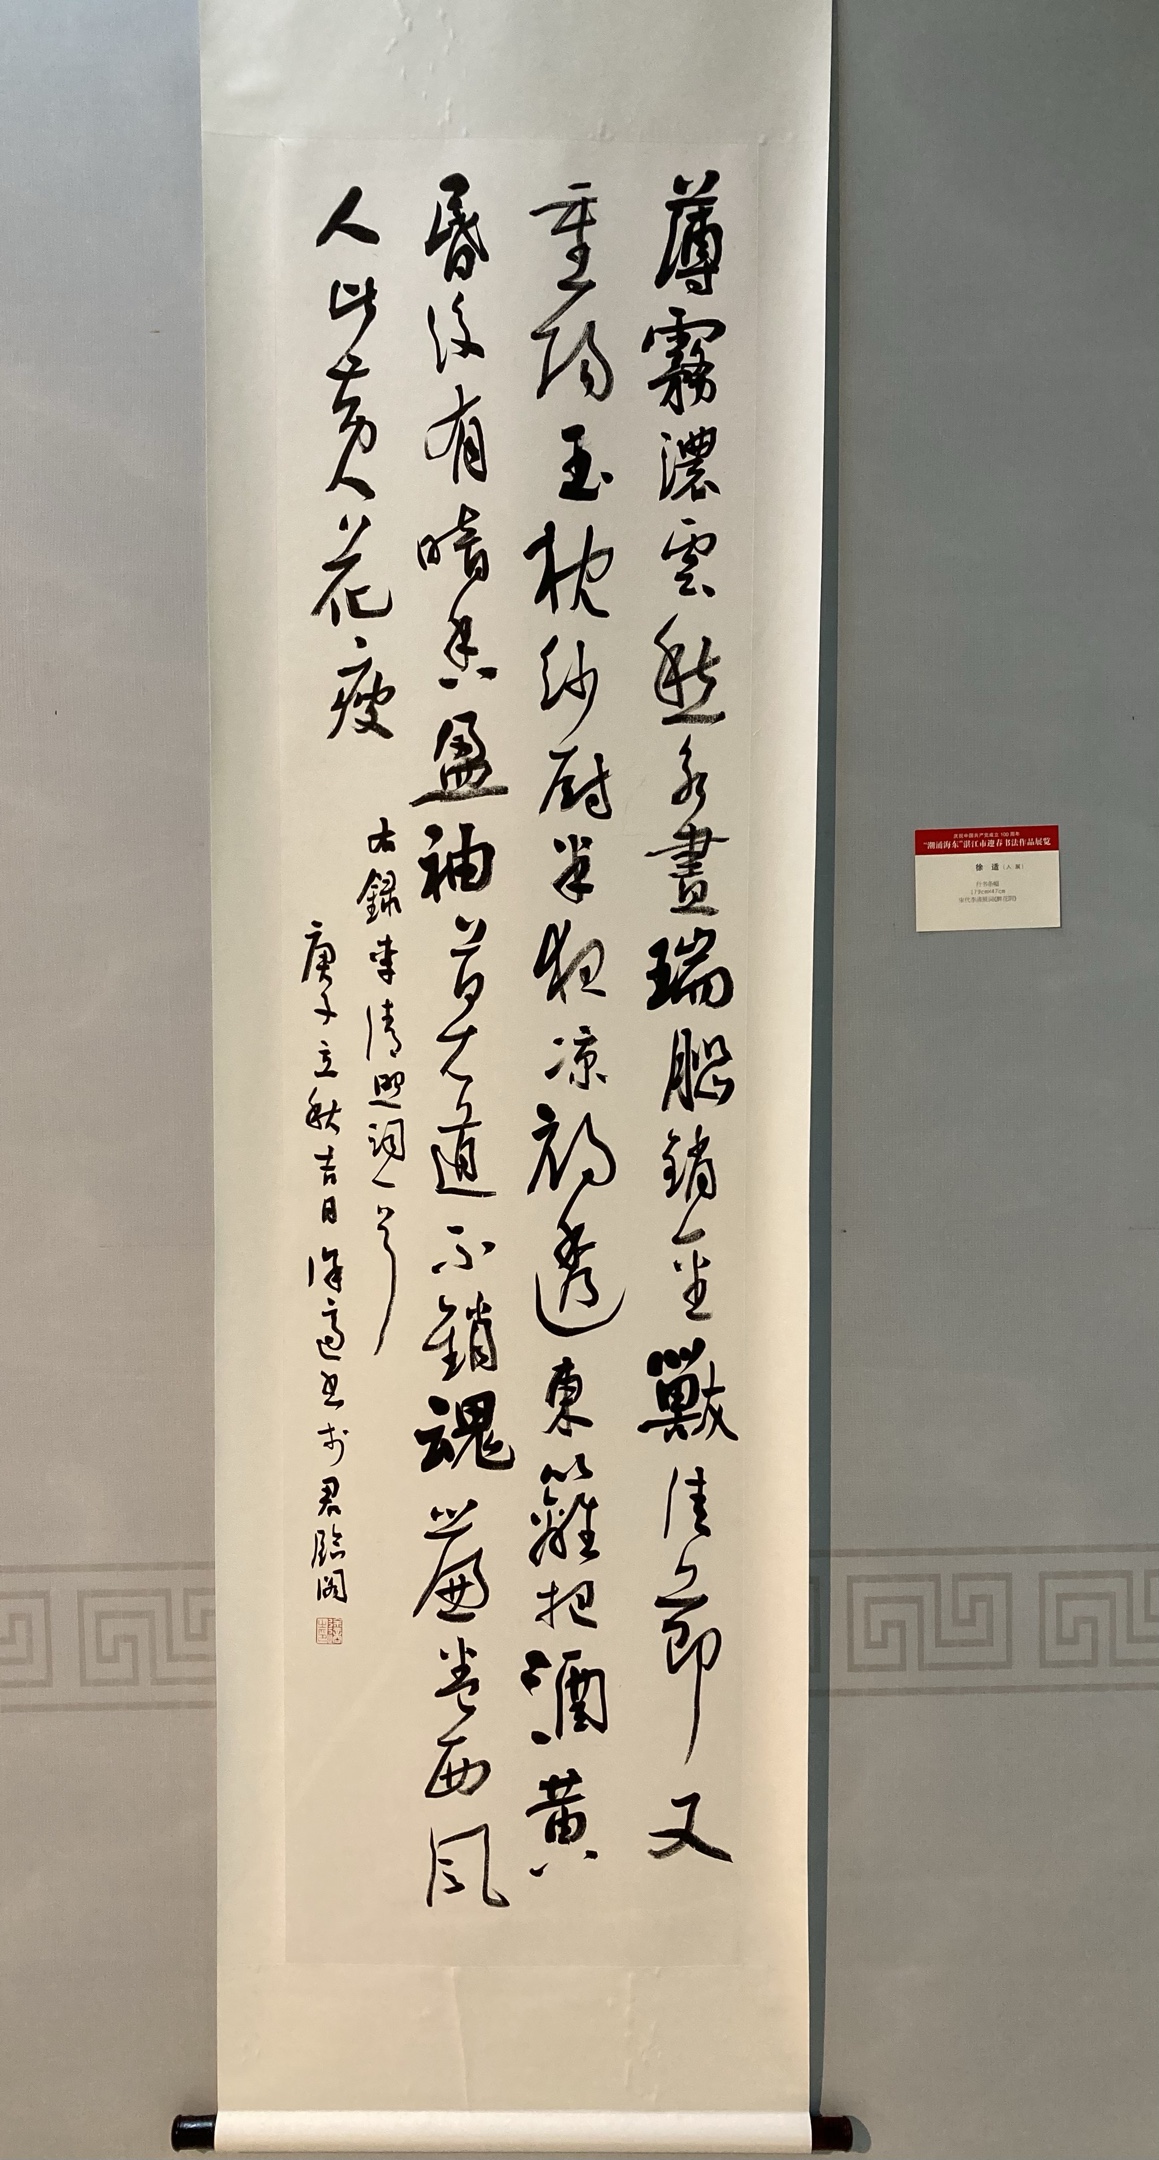 薄霧濃雲愁永晝瑞腦銷金獸佳節又
重陽玉枕紗厨半夜凉初透東籬把酒黄
昏後有暗香盈袖莫道不銷魂簾卷西風
人比黄花瘦
右録李清照詞一首
庚子立秋吉日徐適書於君臨閣
庆祝中国共产党成立100周年
“潮涌海东”湛江市迎春书法作品展览
徐 适（入展）
行书条幅
179cm×47cm
宋代李清照词《醉花阴》